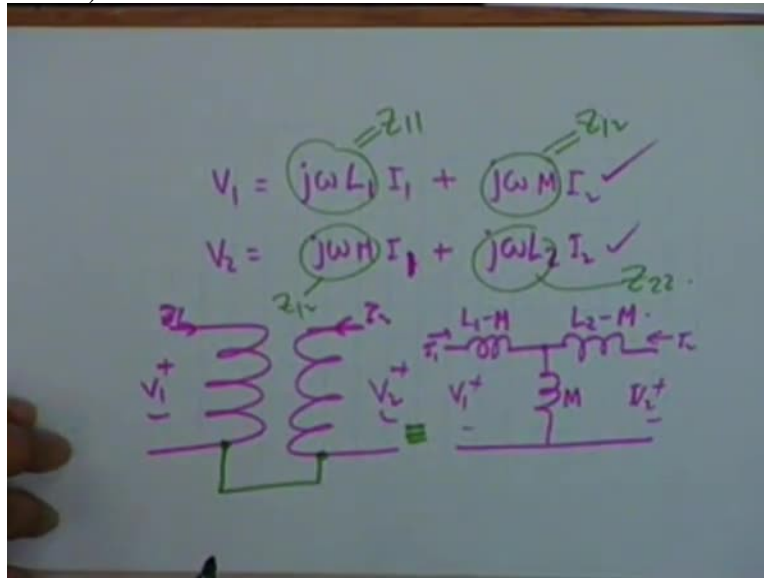 Z11
Z12
V1 = jωL1 I1 + jωM I2 ✓
V2 = jωM I1 + jωL2 I2 ✓
Z12
Z22.
I2
L1-M
L2-M.
I1
I2
V1 + -
V2 + -
≡
V1 + -
M
V2 + -